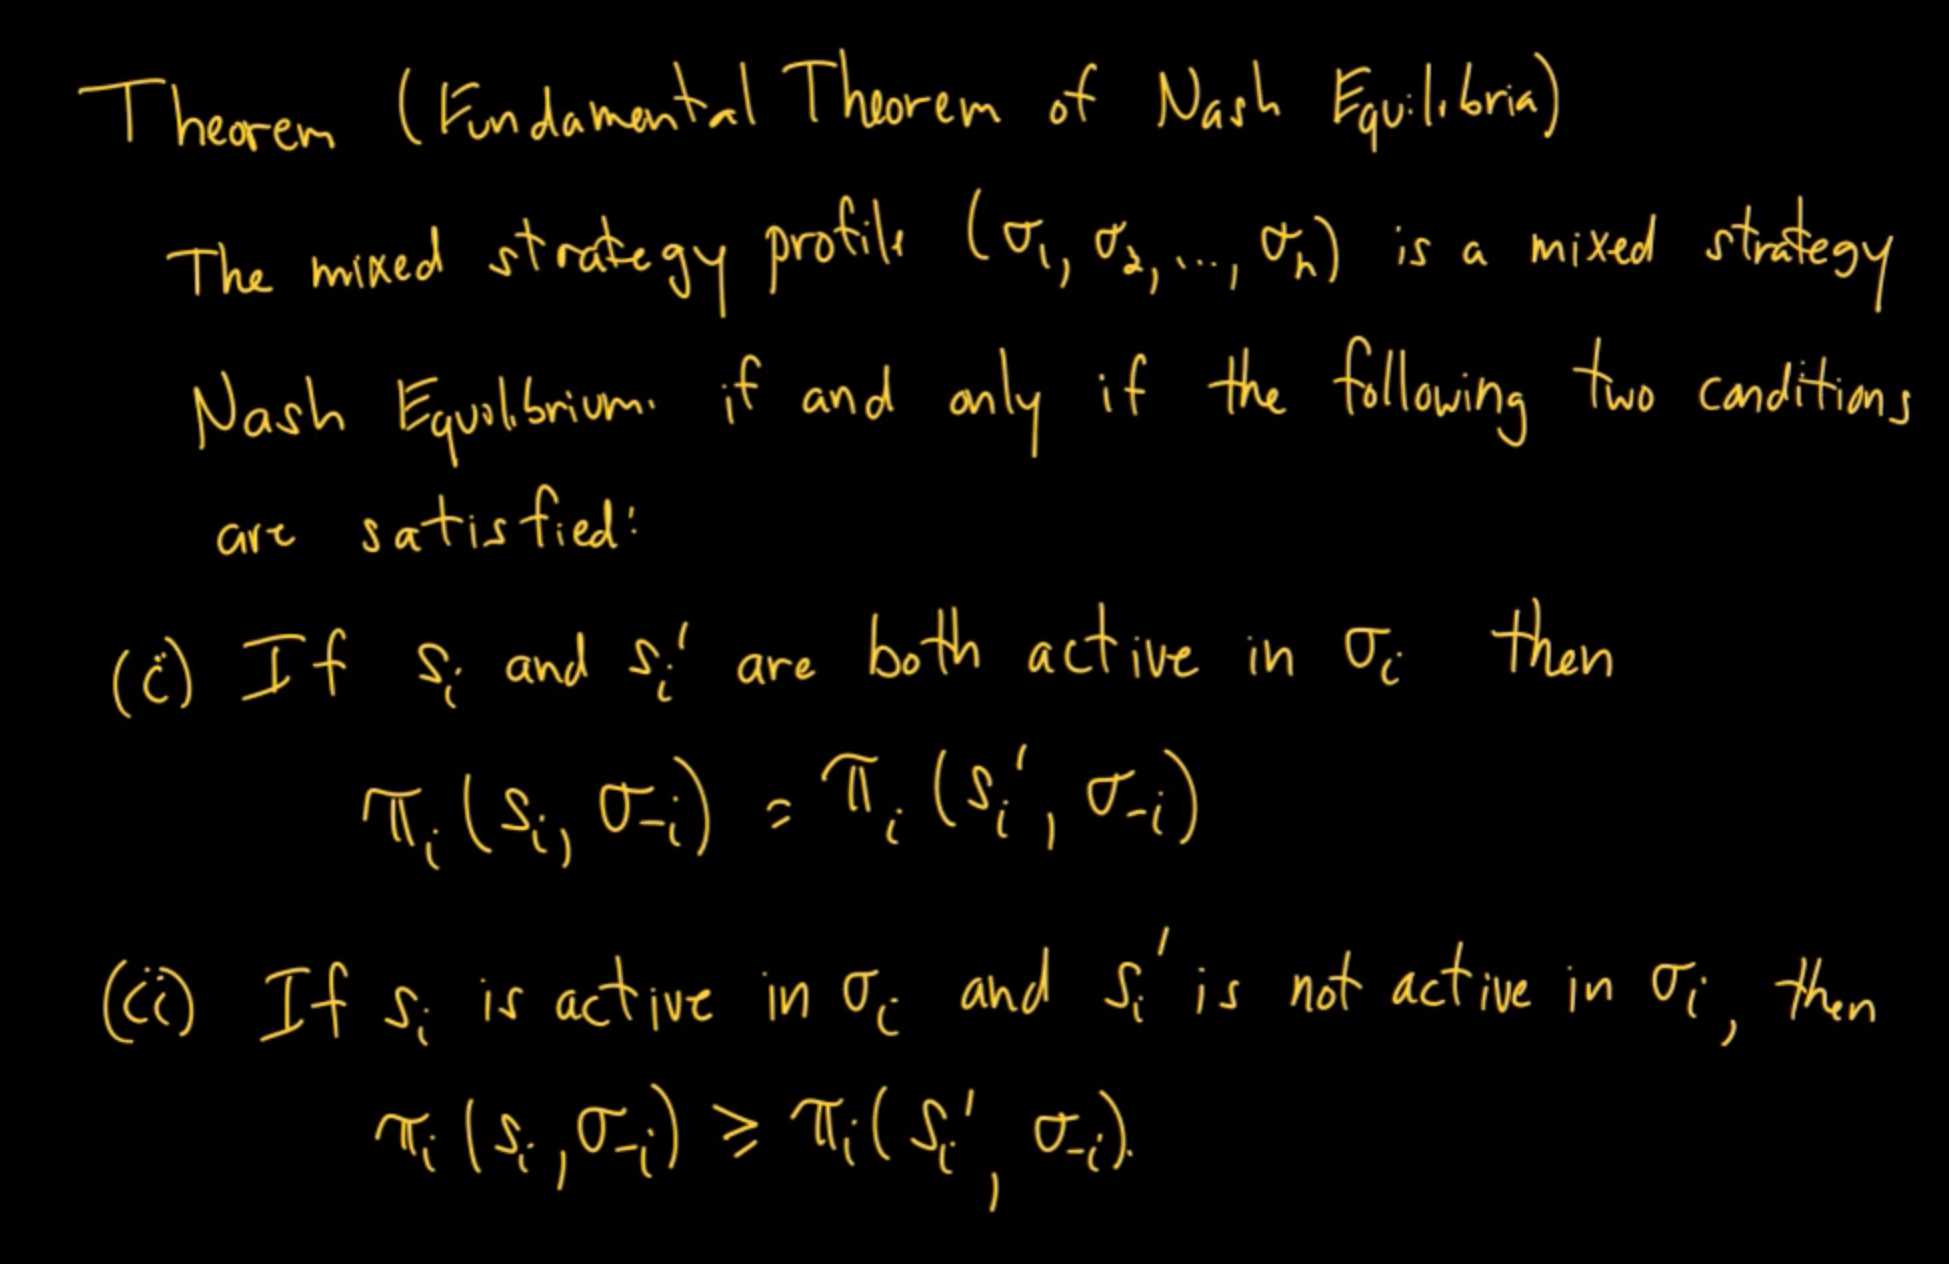 Theorem (Fundamental Theorem of Nash Equilibria)
The mixed strategy profile (σ₁, σ₂, ..., σₙ) is a mixed strategy
Nash Equilibrium if and only if the following two conditions
are satisfied:
(i) If sᵢ and sᵢ' are both active in σᵢ then
πᵢ(sᵢ, σ₋ᵢ) = πᵢ(sᵢ', σ₋ᵢ)
(ii) If sᵢ is active in σᵢ and sᵢ' is not active in σᵢ, then
πᵢ(sᵢ, σ₋ᵢ) ≥ πᵢ(sᵢ', σ₋ᵢ).